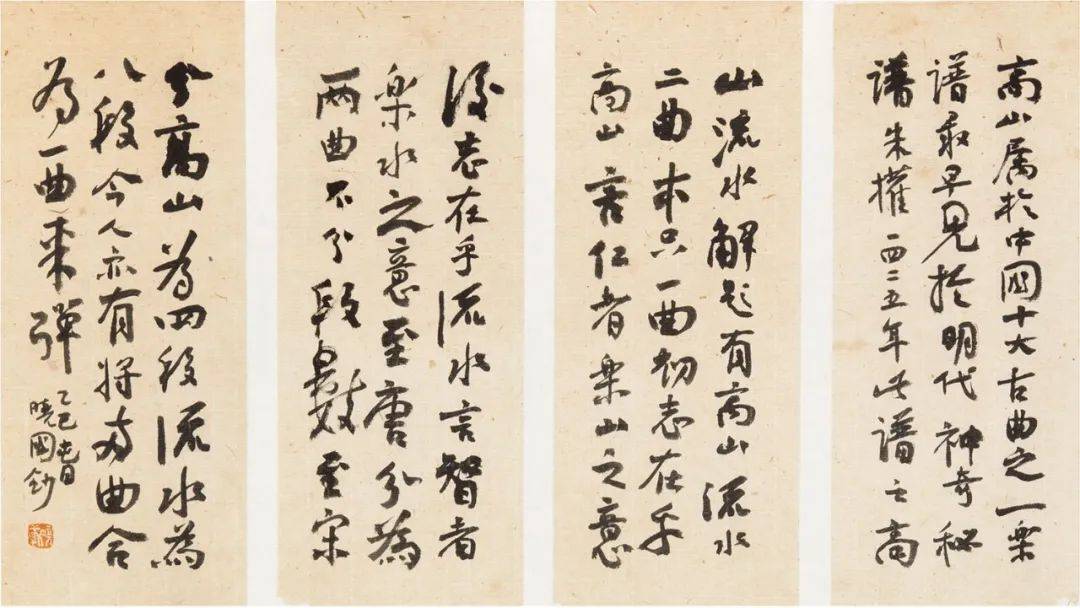 高山属於中國十大古曲之一楽
谱最早見於明代神奇秘
譜朱權一四二五年此譜云高
山流水解题有高山流水
二曲本只一曲初志在乎
高山言仁者楽山之意
後志在乎流水言智者
楽水之意至唐分為
两曲不分段數至宋
分高山為四段流水為
八段今人亦有将两曲合
為一曲来彈
乙巳春日
曉國鈔